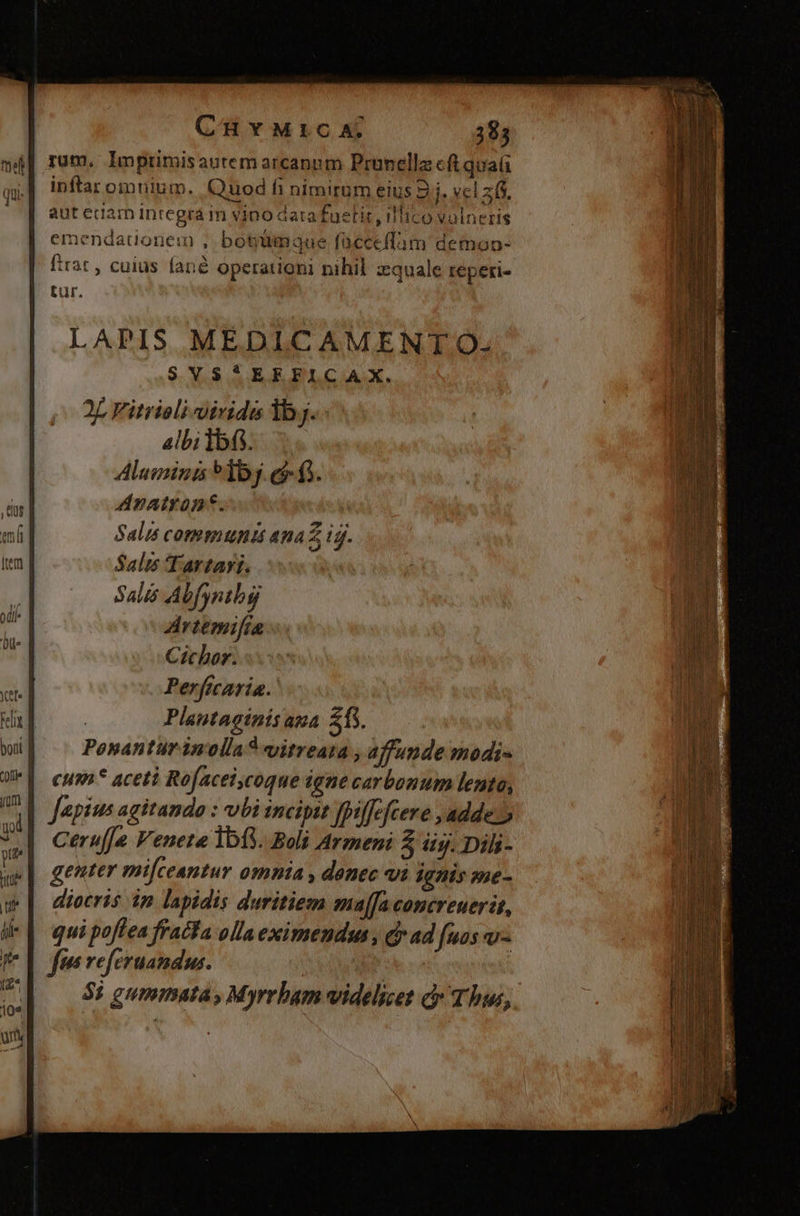 CHYMICA. 383
rum. Imprimis autem arcanum Prunellæ eſt quaſi
inſtar omnium. Quod ſi nimirum eius ℈ j. vel ʒß,
aut etiam integrâ in vino data fuerit, illico vulneris
emendationem, botrúmque ſucceſſum demon-
ſtrat, cuius ſanè operationi nihil æquale reperi-
tur.
LAPIS MEDICAMENTO-
SVS ᵃ EFFICAX.
♃ Vitrioli viridis ℔ j.
albi ℔ß.
Aluminis ᵇ ℔ j. & ß.
Anatron ᶜ.
Salis communis ana ℥ iij.
Salis Tartari.
Salis Abſynthij
Artemiſiæ
Cichor.
Perſicariæ.
Plantaginis ana ℥ß.
Ponantur in olla ᵈ vitreata, affunde modi-
cum ᵉ aceti Roſacei, coque igne carbonum lento,
ſæpius agitando : vbi incipit ſpiſſeſcere, adde
Ceruſſæ Venetæ ℔ß. Boli Armeni ℥ iiij. Dili-
genter miſceantur omnia, donec vi ignis me-
diocris in lapidis duritiem maſſa concreuerit,
qui poſtea fracta olla eximendus, & ad ſuos v-
ſus reſeruandus.
Si gummata, Myrrham videlicet & Thus,